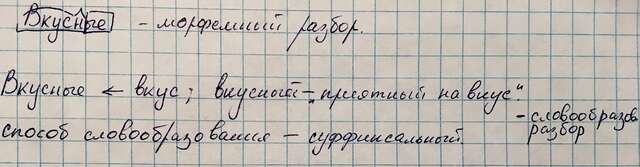 Вкусные - морфемный разбор.
Вкусные ← вкус; вкусный - „приятный на вкус".
- словообразов
разбор
способ словообразования - суффиксальный.